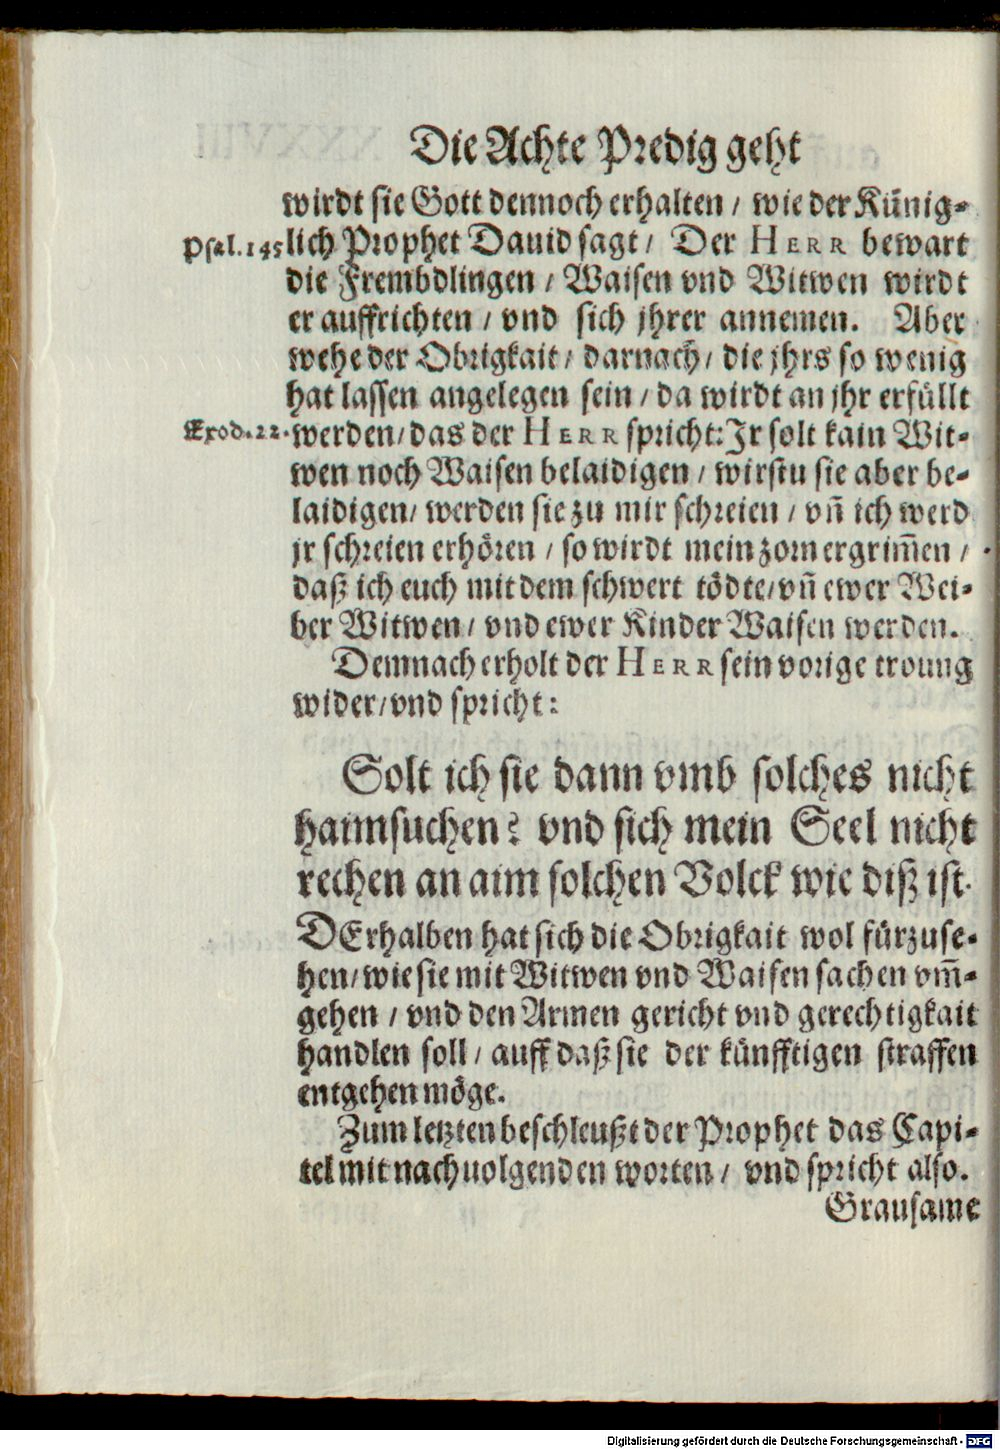 Die Achte Predig geht
wirdt sie Gott dennoch erhalten / wie der Künig-
Psal. 145 lich Prophet Dauid sagt / Der HERR bewart
die Frembdlingen / Waisen vnd Witwen wirdt
er auffrichten / vnd sich jhrer annemen. Aber
wehe der Obrigkait / darnach / die jhrs so wenig
hat lassen angelegen sein / da wirdt an jhr erfüllt
Exod. 22. werden / das der HERR spricht: Ir solt kain Wit-
wen noch Waisen belaidigen / wirstu sie aber be-
laidigen / werden sie zu mir schreien / vñ ich werd
jr schreien erhören / so wirdt mein zorn ergrim̃en /
daß ich euch mit dem schwert tödte / vñ ewer Wei-
ber Witwen / vnd ewer Kinder Waisen werden.
Demnach erholt der HERR sein vorige troung
wider / vnd spricht:
Solt ich sie dann vmb solches nicht
haimsuchen? vnd sich mein Seel nicht
rechen an aim solchen Volck wie diß ist.
DErhalben hat sich die Obrigkait wol fürzuse-
hen / wie sie mit Witwen vnd Waisen sachen vm̃-
gehen / vnd den Armen gericht vnd gerechtigkait
handlen soll / auff daß sie der künfftigen straffen
entgehen möge.
Zum letzten beschleußt der Prophet das Capi-
tel mit nachuolgenden worten / vnd spricht also.
Grausame
Digitalisierung gefördert durch die Deutsche Forschungsgemeinschaft - DFG